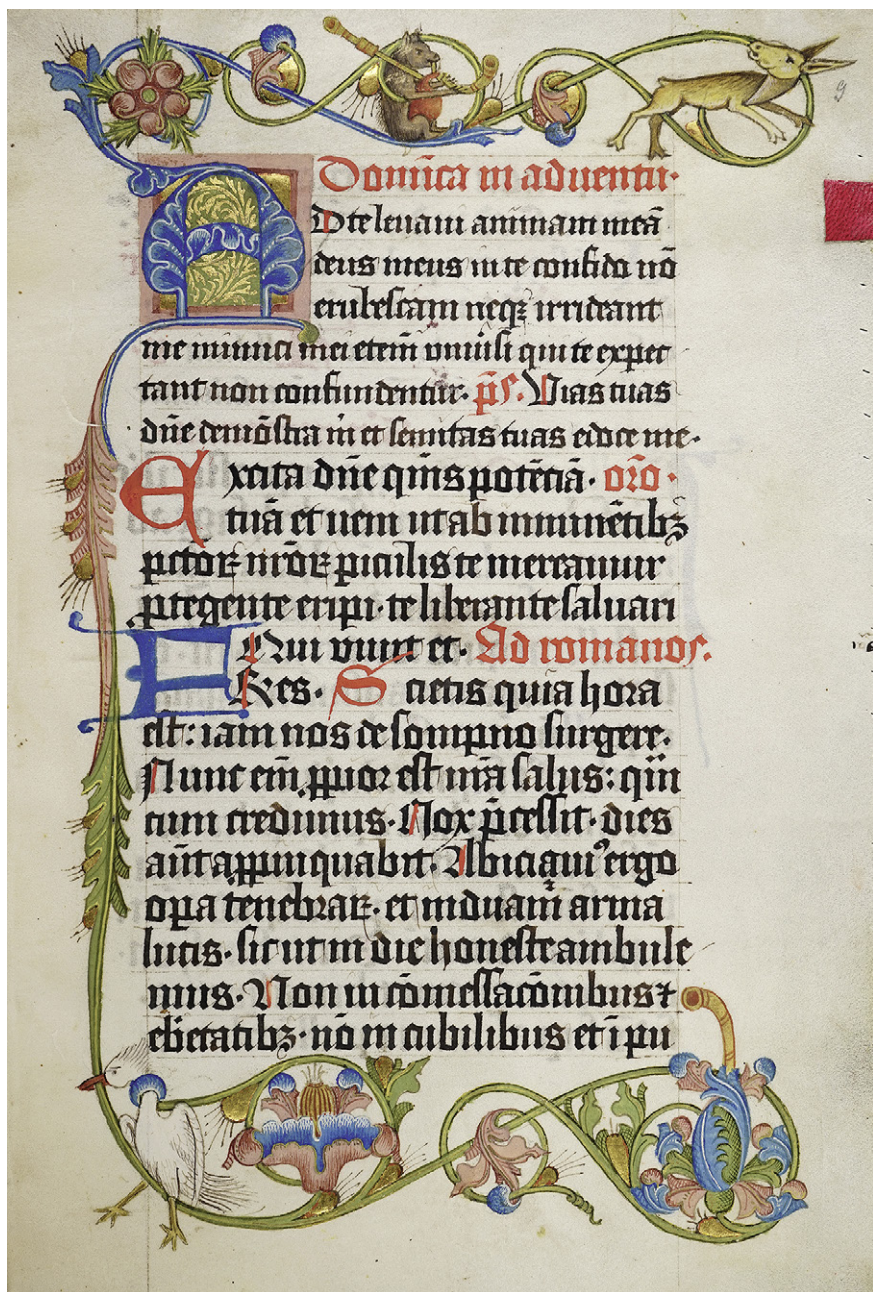 9
Domĩca in aduentu·
AD te leuaui animam meã
deus meus in te confido nõ
erubescam neqꝫ irrideant
me inimici mei etem̃ vniũsi qui te expec
tant non confundentur· p̃s. Vias tuas
dñe demõstra m̃ et semitas tuas edoce me·
Excita dñe qm̃s potẽciã· orõ·
tuã et ueni ut ab imminẽtibꝫ
pctoꝝ nr̃oꝝ piculis te mereamur
ꝓtegente eripi· te liberante saluari
Qui viuit et· Ad romanos.
FRes· Scietis quia hora
est: iam nos de sompno surgere·
Nunc em̃ ꝓpior est nr̃a salus: qm̃
cum credimus· Nox p̃cessit· dies
aũt aꝓpinquabit· Abiciamꝰ ergo
oꝑa tenebraꝝ· et induam̃ arma
lucis· sicut in die honeste ambule
mus· Non in cõmessacõnibus ⁊
eb̾etatibꝫ· nõ in cubilibus et ĩpu